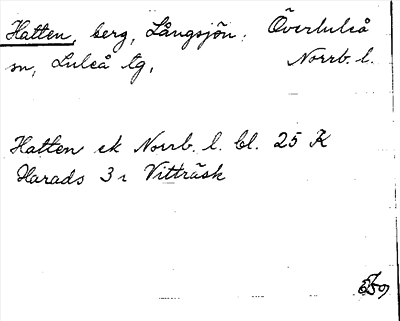 Hatten, berg, Långsjön. Överluleå
sn, Luleå tg, Norrb. l.
Hatten ek Norrb. l. bl. 25 K
Harads 3 r Vitträsk